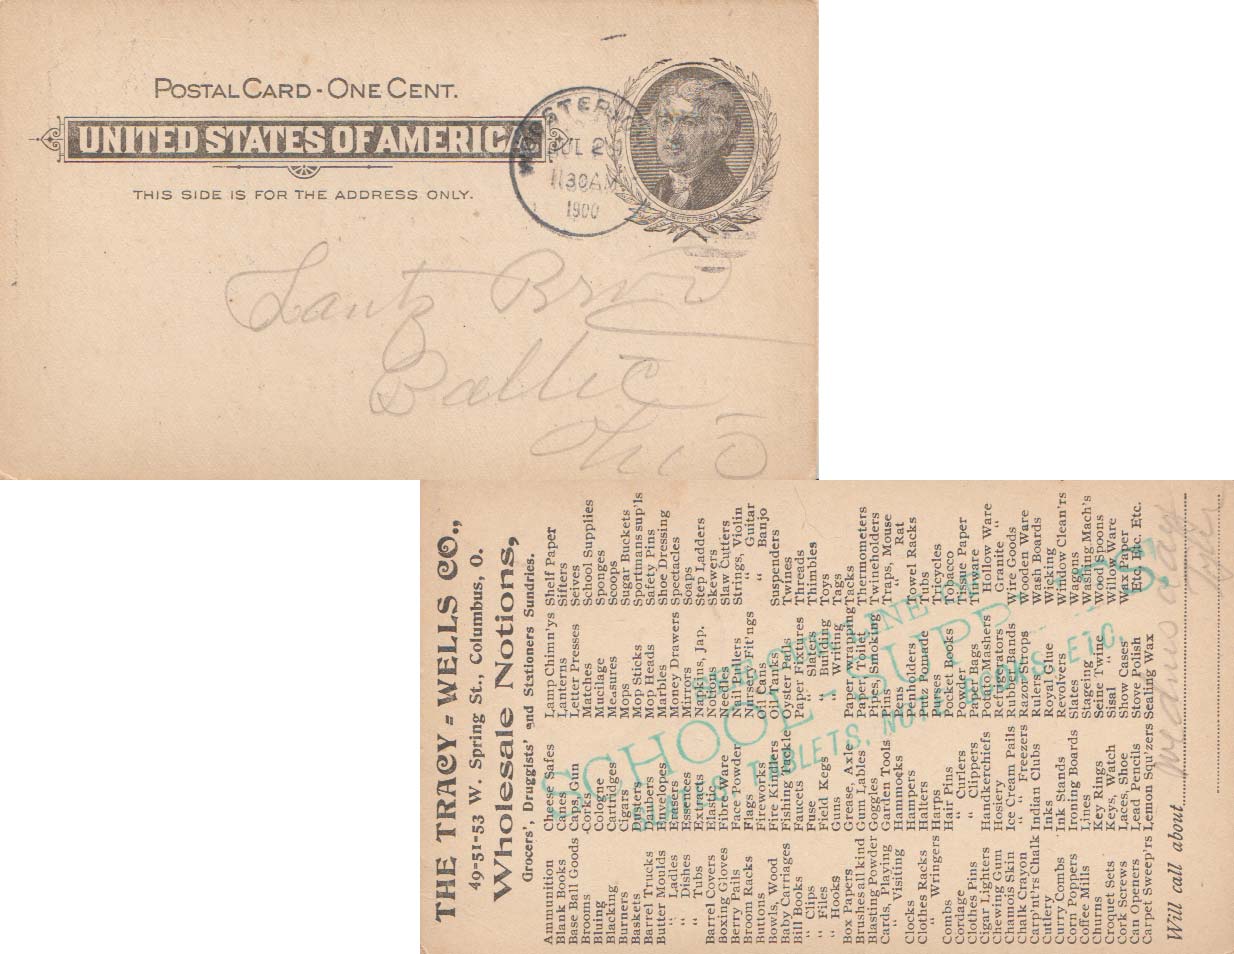 POSTAL CARD - ONE CENT.
UNITED STATES OF AMERICA
THIS SIDE IS FOR THE ADDRESS ONLY.
WOOSTER
JUL 2
11 30 AM
1900
JEFFERSON
Lantz Bros
Baltic
Ohio
THE TRACY-WELLS CO.,
49-51-53 W. Spring St., Columbus, O.
Wholesale Notions,
Grocers', Druggists' and Stationers Sundries.
Ammunition
Blank Books
Base Ball Goods
Brooms
Bluing
Blacking
Burners
Baskets
Barrel Trucks
Butter Moulds
" Ladles
" Dishes
" Tubs
Barrel Covers
Boxing Gloves
Berry Pails
Broom Racks
Buttons
Bowls, Wood
Baby Carriages
Bill Books
" Clips
" Files
" Hooks
Box Papers
Brushes all kind
Blasting Powder
Cards, Playing
" Visiting
Clocks
Clothes Racks
" Wringers
Combs
Cordage
Clothes Pins
Cigar Lighters
Chewing Gum
Chamois Skin
Chalk Crayon
Carp'nt'rs Chalk
Cutlery
Curry Combs
Corn Poppers
Coffee Mills
Churns
Croquet Sets
Cork Screws
Can Openers
Carpet Sweep'rs
Cheese Safes
Candies
Caps, Gun
Corks
Cologne
Cartridges
Cigars
Dusters
Daubers
Envelopes
Erasers
Essences
Extracts
Elastic
Fibre Ware
Face Powder
Flags
Fireworks
Fire Kindlers
Fishing Tackle
Faucets
Fuse
Field Kegs
Guns
Grease, Axle
Gum Lables
Goggles
Garden Tools
Hammocks
Hampers
Halters
Harps
Hair Pins
" Curlers
" Clippers
Handkerchiefs
Hosiery
Ice Cream Pails
" Freezers
Indian Clubs
Inks
Ink Stands
Ironing Boards
Lines
Key Rings
Keys, Watch
Laces, Shoe
Lead Pencils
Lemon Squ'zers
Lamp Chimn'ys
Lanterns
Letter Presses
Matches
Mucilage
Measures
Mops
Mop Sticks
Mop Heads
Marbles
Money Drawers
Mirrors
Napkins, Jap.
Notions
Needles
Nail Pullers
Nursery Fit'ngs
Oil Cans
Oil Tanks
Oyster Pails
Paper Fixtures
" Slaters
" Building
" Writing
Paper, wrapping
Paper, Toilet
Pipes, Smoking
Pins
Pens
Penholders
Putz Pomade
Purses
Pocket Books
Powder
Paper Bags
Potato Mashers
Refrigerators
Rubber Bands
Razor Strops
Rulers
Royal Glue
Revolvers
Slates
Stageing
Seine Twine
Sisal "
Show Cases
Stove Polish
Sealing Wax
Shelf Paper
Sifters
Seives
School Supplies
Sponges
Scoops
Sugar Buckets
Sportmans sup'ls
Safety Pins
Shoe Dressing
Spectacles
Soaps
Step Ladders
Skewers
Slaw Cutters
Strings, Violin
" Guitar
" Banjo
Suspenders
Twines
Threads
Thimbles
Toys
Tags
Tacks
Thermometers
Twineholders
Traps, Mouse
" Rat
Towel Racks
Tubs
Tricycles
Tobacco
Tissue Paper
Tinware
Hollow Ware
Granite "
Wire Goods
Wooden Ware
Wash Boards
Wicking
Window Clean'rs
Wagons
Washing Mach's
Wood Spoons
Willow Ware
Wax Paper
Etc. Etc. Etc.
SCHOOL SUPP
TABLETS, NOTIONS ETC.
Will call about
Tyler